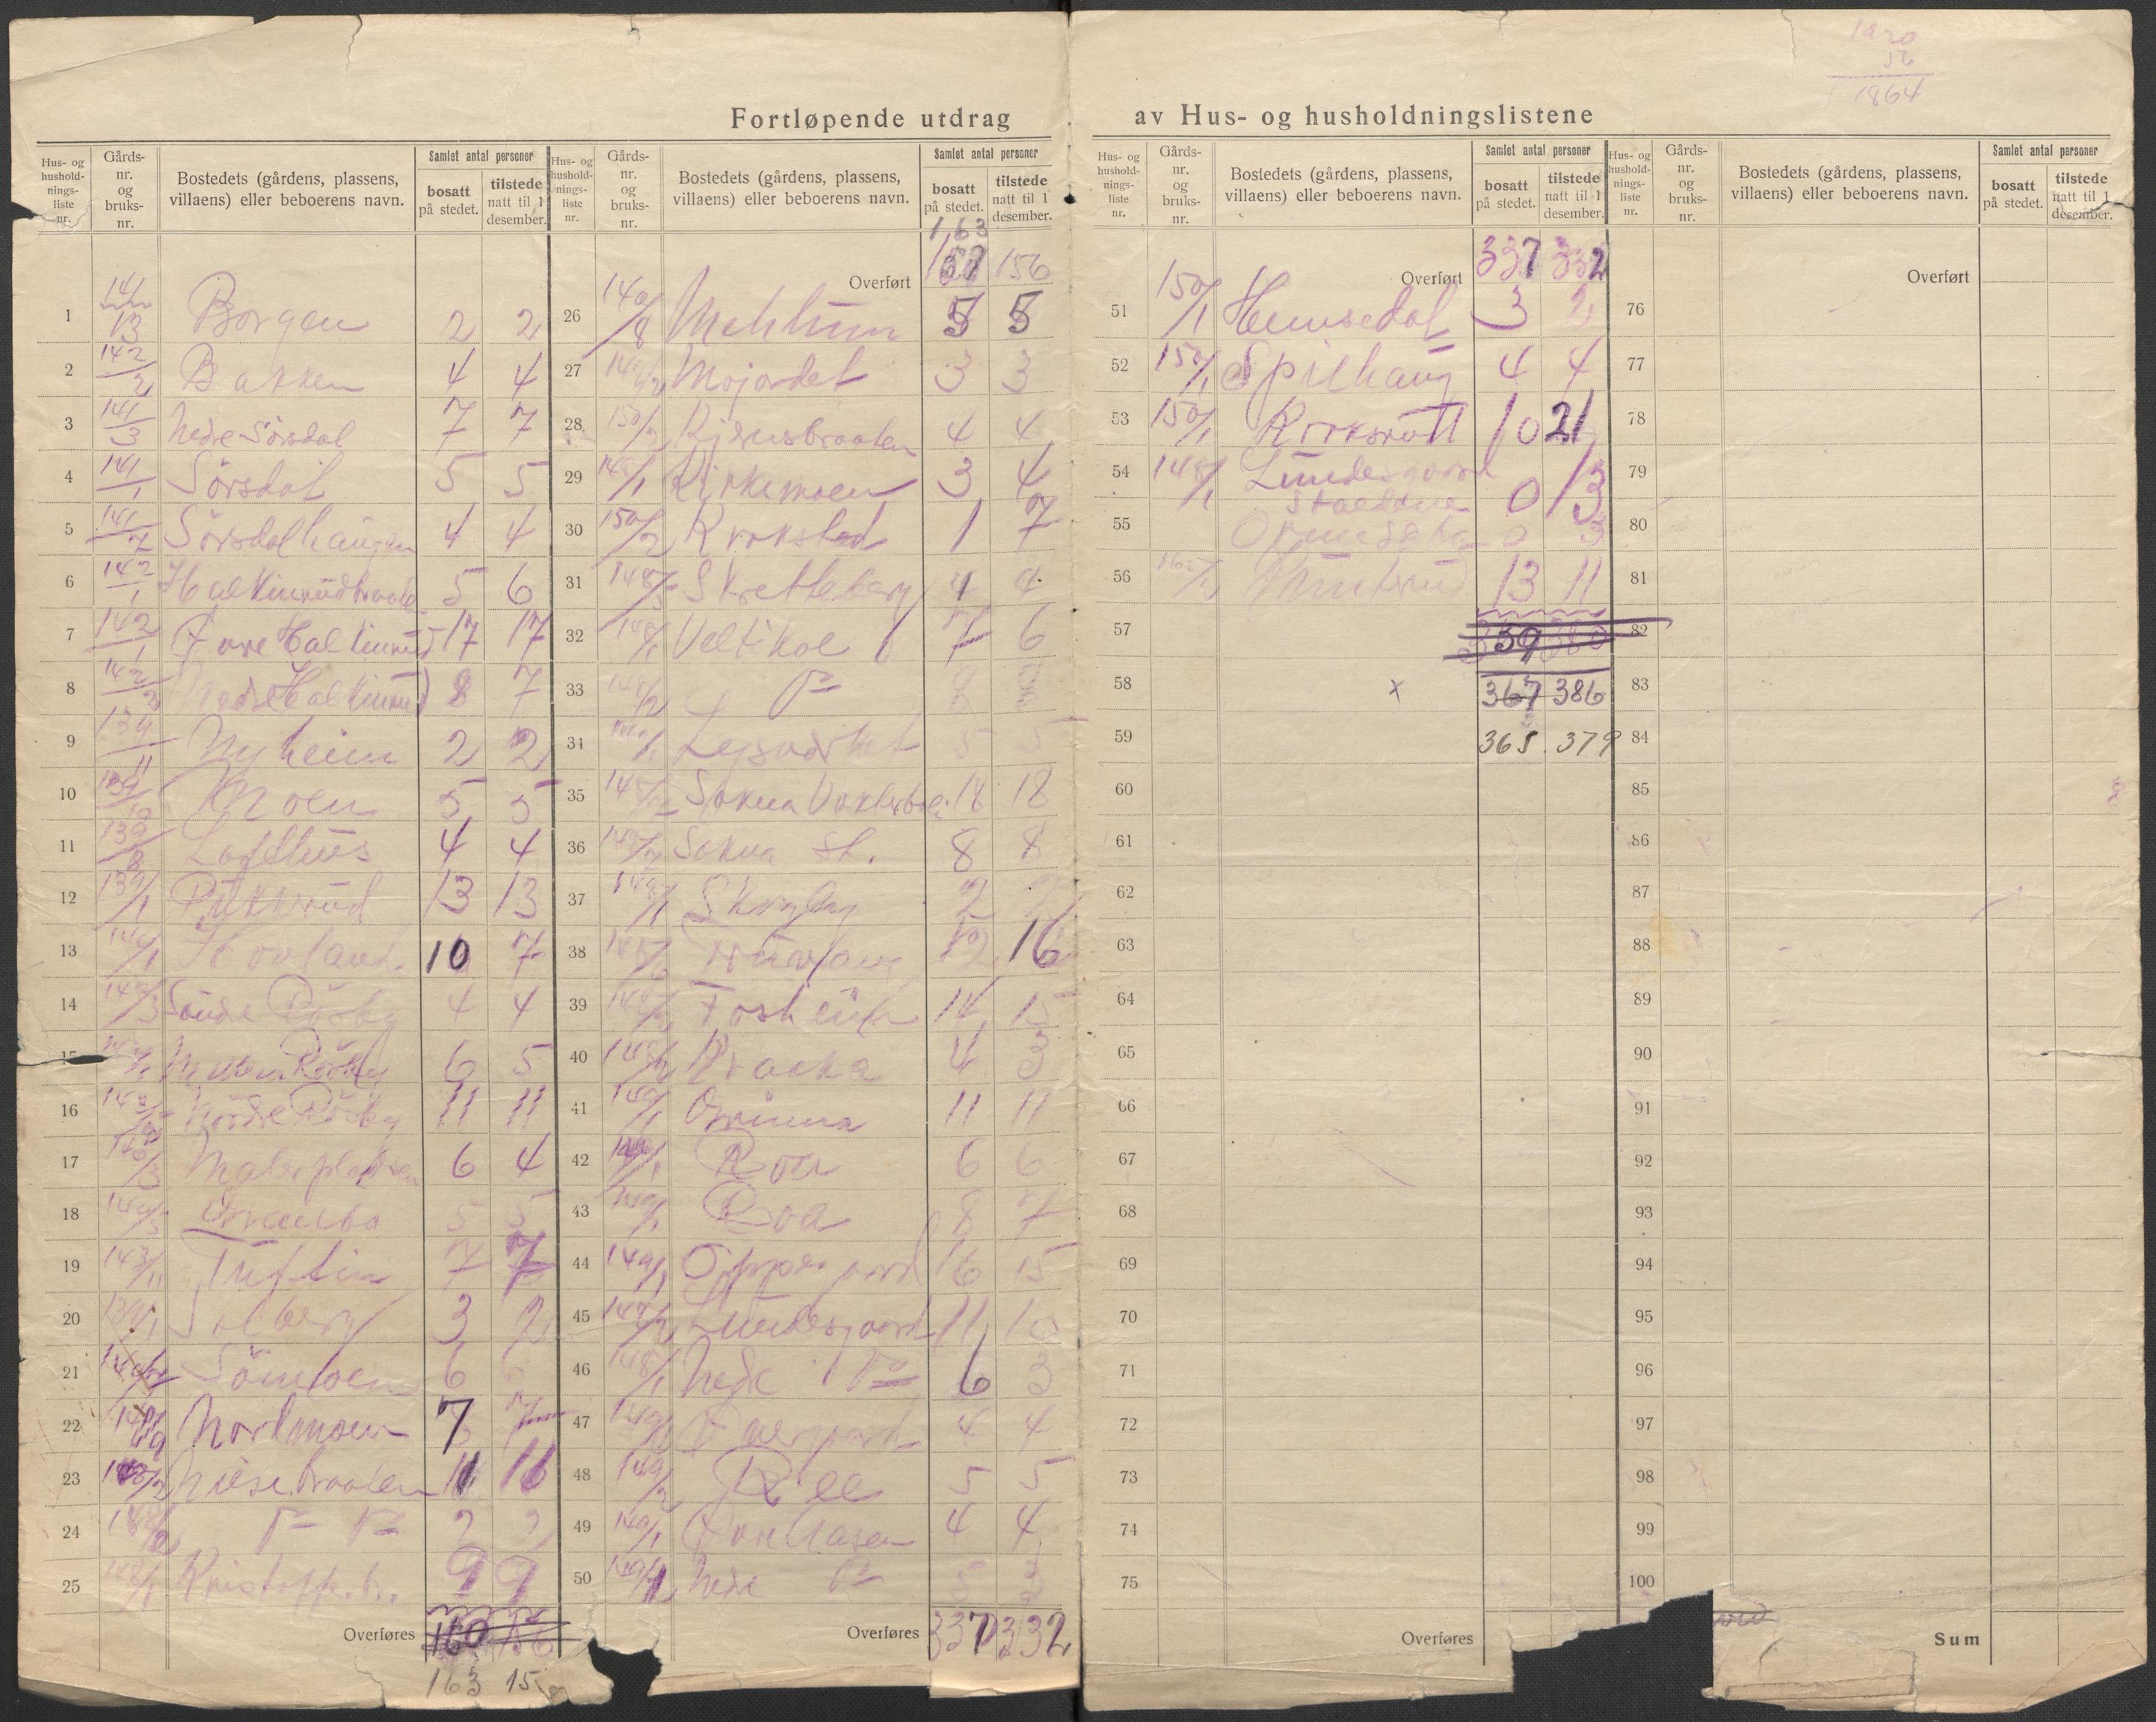 1920
56
1864
Fortløpende utdrag av Hus- og husholdningslistene
Hus- og husholdnings-liste nr. Gårds-nr. og bruks-nr. Bostedets (gårdens, plassens, villaens) eller beboerens navn. Samlet antal personer bosatt på stedet. tilstede natt til 1 desember.
1 141/13 Borgen 2 2
2 142/2 Bakken 4 4
3 141/3 Nedre Sörsdal 7 7
4 141/1 Sörsdal 5 5
5 141/7 Sörsdalhaugen 4 4
6 142/1 Halkinrüdbraate 5 6
7 142/1 Övre Halkinrüd 17 17
8 142/2 Nedre Halkinrud 8 7
9 139/11 Nyheim 2 2
10 139/10 Moen 5 5
11 139/8 Lofthüs 4 4
12 139/1 13 13
13 149/1 Hovland 10 7
14 149/3 Söndre Rösby 4 4
15 Mellem Rösby 6 5
16 Nordre Rösby 11 11
17 140/3 Malerpladsen 6 4
18 5 5
19 143/11 Tuftin 7 7
20 139/1 Solberg 3 2
21 Sömoen 6
22 Nordmoen 7 7
23 148/2 Nilsebraaten 11 16
24 2 2
25 Kristoff.br. 9 9
Overføres 160 156
163 15
Hus- og husholdnings-liste nr. Gårds-nr. og bruks-nr. Bostedets (gårdens, plassens, villaens) eller beboerens navn. Samlet antal personer bosatt på stedet. tilstede natt til 1 desember.
163
Overført 156
26 140/8 Mehlüm 5 5
27 Mojordet 3 3
28 150/2 4 4
29 148/1 Kirkemoen 3 4
30 150/2 Krokstad 1 7
31 148/5 Skretteberg 4 4
32 148/1 Veltikol 7 6
33 148/2
34 Lysverket 5 5
35 Sokna Vokterbol. 18 18
36 Sokna St. 8 8
37 2
38 12 16
39 Tosheim 14 15
40 148/2 Kraaka 4 3
41 149/1 11 11
42 Roa 6 6
43 149/1 Roa 8 7
44 149/1 Oppegaard 16 15
45 149/2 Lundesgaard 11 10
46 148/1 Nedre 6 3
47 4 4
48 149/2 Ree 5 5
49 149/1 Övre Aasen 4 4
50 Nedre
Overføres 337 332
Hus- og husholdnings-liste nr. Gårds-nr. og bruks-nr. Bostedets (gårdens, plassens, villaens) eller beboerens navn. Samlet antal personer bosatt på stedet. tilstede natt til 1 desember.
Overført 337 332
51 150/1 Hemsedal 3 2
52 150/1 Spilhaug 4 4
53 150/1 10 21
54 148/1 Lundesgaard Staldene 0 13
55 0 3
56 13 11
57
58 x 367 386
59 365 379
60
61
62
63
64
65
66
67
68
69
70
71
72
73
74
75
Overføres
Hus- og husholdnings-liste nr. Gårds-nr. og bruks-nr. Bostedets (gårdens, plassens, villaens) eller beboerens navn. Samlet antal personer bosatt på stedet. tilstede natt til 1 desember.
Overført
76
77
78
79
80
81
82
83
84
85
86
87
88
89
90
91
92
93
94
95
96
97
98
99
100
Sum